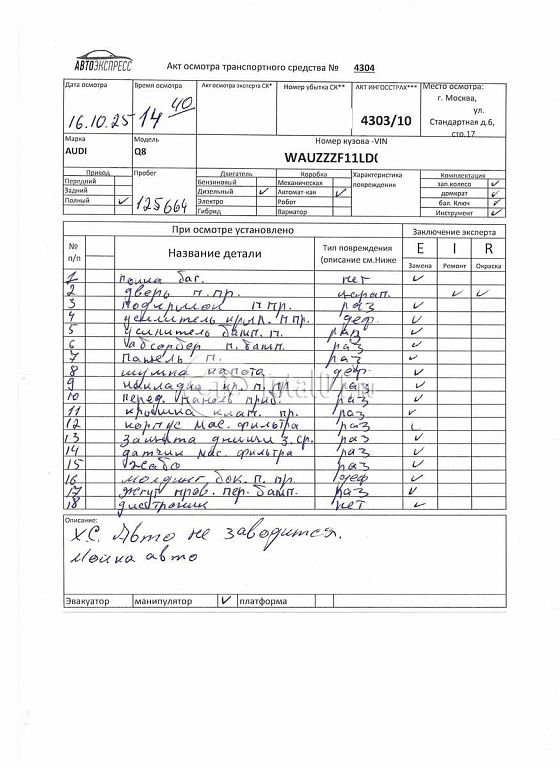 АВТОЭКСПРЕСС
Акт осмотра транспортного средства № 4304
Дата осмотра
Время осмотра
Акт осмотра эксперта СК*
Номер убытка СК**
АКТ ИНГОССТРАХ***
Место осмотра:
16.10.25
14 40
4303/10
г. Москва,
ул.
Стандартная д.6,
стр.17
Марка
Модель
Номер кузова -VIN
AUDI
Q8
WAUZZZF11LD
Привод
Пробег
Двигатель
Коробка
Характеристика
повреждения
Комплектация
Передний
Бензиновый
Механическая
зап.колесо
Задний
Дизельный
Автомат-кая
домкрат
Полный
125664
Электро
Робот
бал. Ключ
Гибрид
Вариатор
Инструмент
При осмотре установлено
Заключение эксперта
№
п/п
Название детали
Тип повреждения
(описание см.Ниже
E I R
Замена Ремонт Окраска
1 полка баг. нет
2 дверь п.пр. царап.
3 подкрылок п пр. раз
4 усилитель крыл. п пр. деф
5 усилитель бамп. п. раз
6 абсорбер п. бамп. раз
7 панель п. раз
8 шумка капота деф.
9 накладка кр. п. пр раз
10 перед. панель приб. раз
11 крышка клап. пр. раз
12 корпус мас. фильтра раз
13 защита днища з. ср. раз
14 датчик мас. фильтра раз
15 жабо раз
16 молдинг бок. п. пр. деф
17 жгут пров. пер. бамп. раз
18 дистроник нет
Описание:
Х.С. Авто не заводится.
Мойка авто
Эвакуатор манипулятор платформа